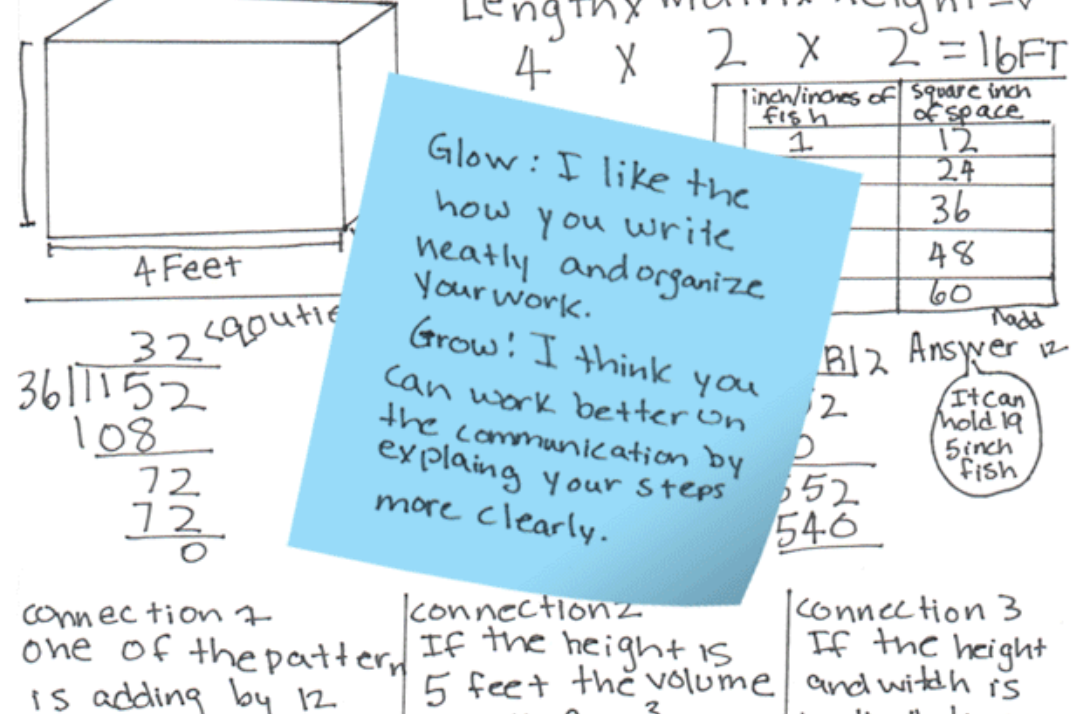 Length x Width x Height = V
4 x 2 x 2 = 16FT
inch/inches of fish
square inch of space
1 12
24
36
48
60
4 Feet
Glow: I like the
how you write
neatly and organize
your work.
Grow: I think you
can work better on
the communication by
explaing your steps
more clearly.
32
36 1152
108
72
72
0
R12
552
540
add 12
Answer
It can
hold 19
5 inch
fish
connection 1
one of the pattern
is adding by 12
connection 2
If the height is
5 feet the volume
connection 3
If the height
and witdh is